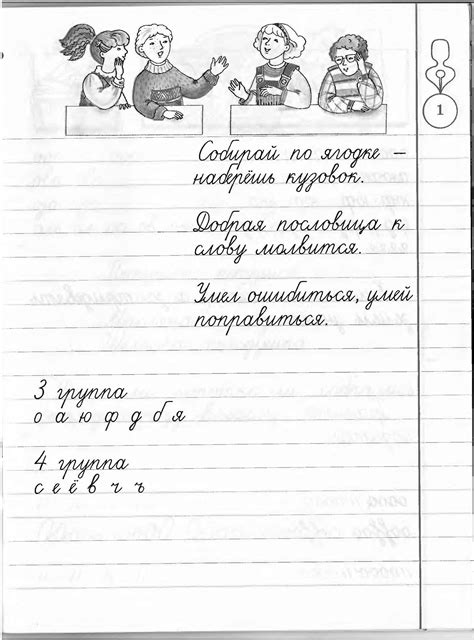 1
Собирай по ягодке –
наберёшь кузовок.
Добрая пословица к
слову молвится.
Умел ошибиться, умей
поправиться.
3 группа
о а ю ф д б я
4 группа
с е ё в ч ъ